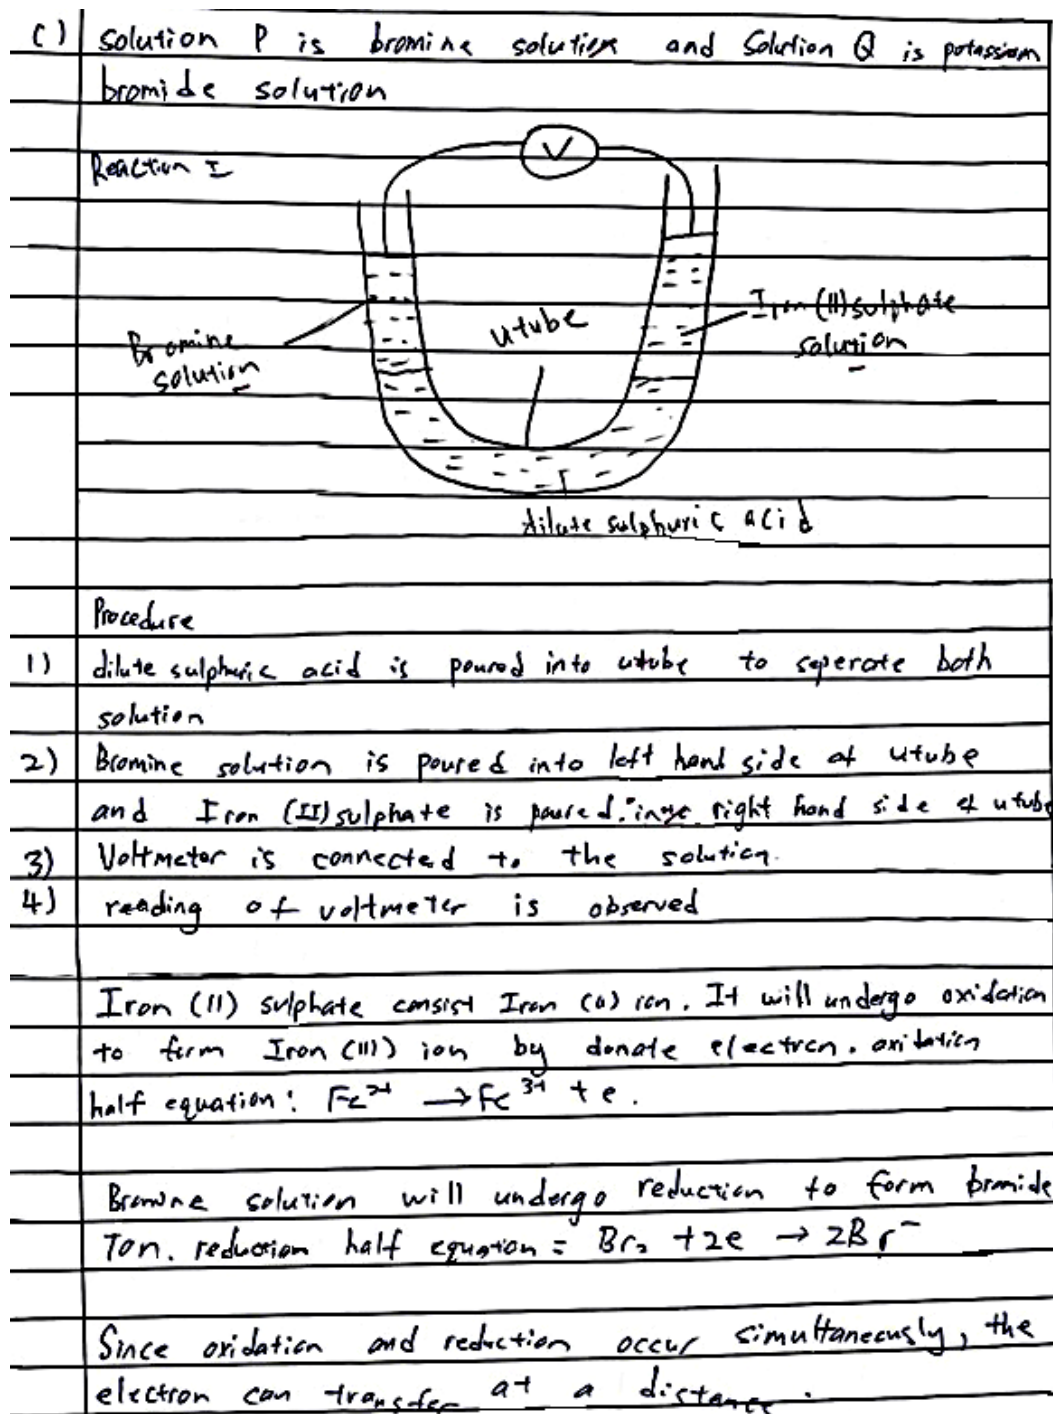 c) solution P is bromine solution and Solution Q is potassium
bromide solution
Reaction I
V
Bromine
solution
utube
Iron (II) sulphate
solution
dilute sulphuric acid
Procedure
1) dilute sulphuric acid is poured into utube to seperate both
solution
2) Bromine solution is poured into left hand side of utube
and Iron (II) sulphate is poured into right hand side of utube
3) Voltmeter is connected to the solution.
4) reading of voltmeter is observed
Iron (II) sulphate consist Iron (II) ion. It will undergo oxidation
to form Iron (III) ion by donate electron. oxidation
half equation: Fe²⁺ → Fe³⁺ + e.
Bromine solution will undergo reduction to form bromide
Ion. reduction half equation = Br₂ + 2e → 2Br⁻
Since oxidation and reduction occur simultaneously, the
electron can transfer at a distance.